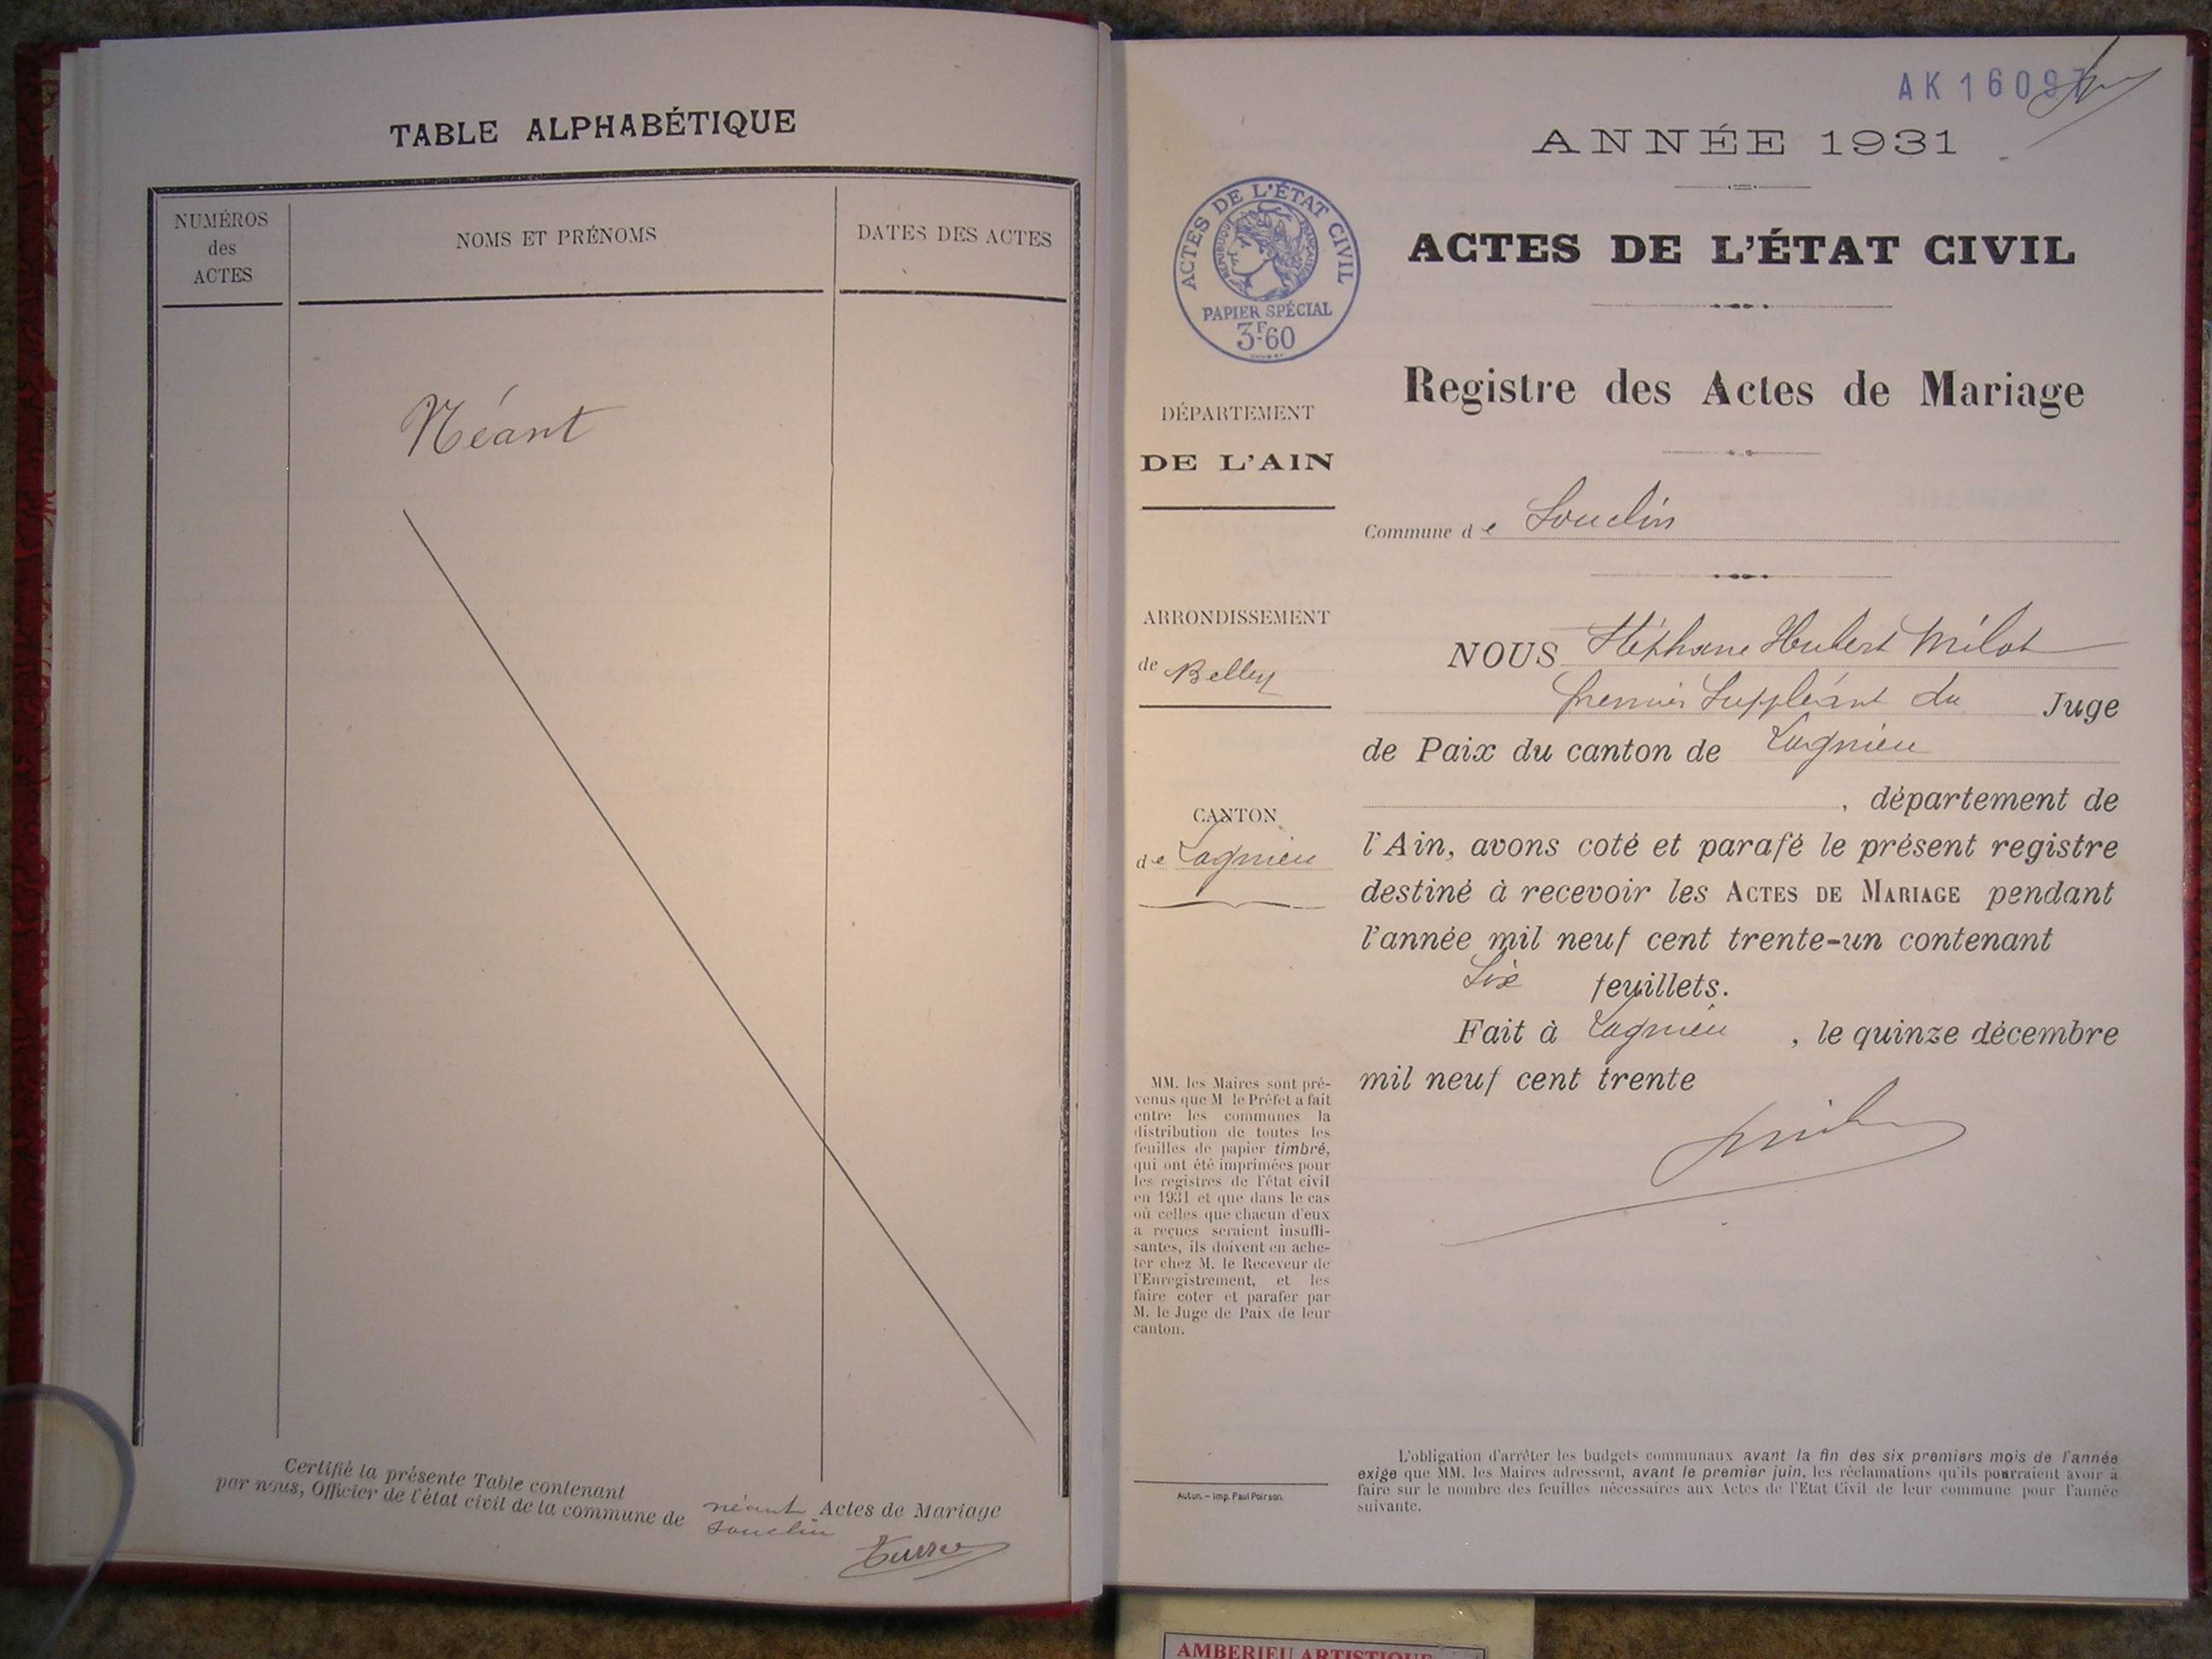 TABLE ALPHABÉTIQUE
NUMÉROS
des
ACTES
NOMS ET PRÉNOMS
DATES DES ACTES
Néant
Certifié la présente Table contenant néant Actes de Mariage
par nous, Officier de l'état civil de la commune de Souclin
AK 1609
ANNÉE 1931
ACTES DE L'ÉTAT CIVIL
RÉPUBLIQUE FRANÇAISE
PAPIER SPÉCIAL
3F60
ACTES DE L'ÉTAT CIVIL
Registre des Actes de Mariage
DÉPARTEMENT
DE L'AIN
Commune de Souclin
ARRONDISSEMENT
de Belley
CANTON
de Lagnieu
NOUS Stéphane Hubert Milot
premier Suppléant du Juge
de Paix du canton de Lagnieu
, département de
l'Ain, avons coté et parafé le présent registre
destiné à recevoir les ACTES DE MARIAGE pendant
l'année mil neuf cent trente-un contenant
Six feuillets.
Fait à Lagnieu , le quinze décembre
mil neuf cent trente
MM. les Maires sont pré-
venus que M le Préfet a fait
entre les communes la
distribution de toutes les
feuilles de papier timbré,
qui ont été imprimées pour
les registres de l'état civil
en 1931 et que dans le cas
où celles que chacun d'eux
a reçues seraient insuffi-
santes, ils doivent en ache-
ter chez M. le Receveur de
l'Enregistrement, et les
faire coter et parafer par
M. le Juge de Paix de leur
canton.
Autun. – Imp. Paul Poirson.
L'obligation d'arrêter les budgets communaux avant la fin des six premiers mois de l'année
exige que MM. les Maires adressent, avant le premier juin, les réclamations qu'ils pourraient avoir à
faire sur le nombre des feuilles nécessaires aux Actes de l'Etat Civil de leur commune pour l'année
suivante.
AMBERIEU ARTISTIQUE